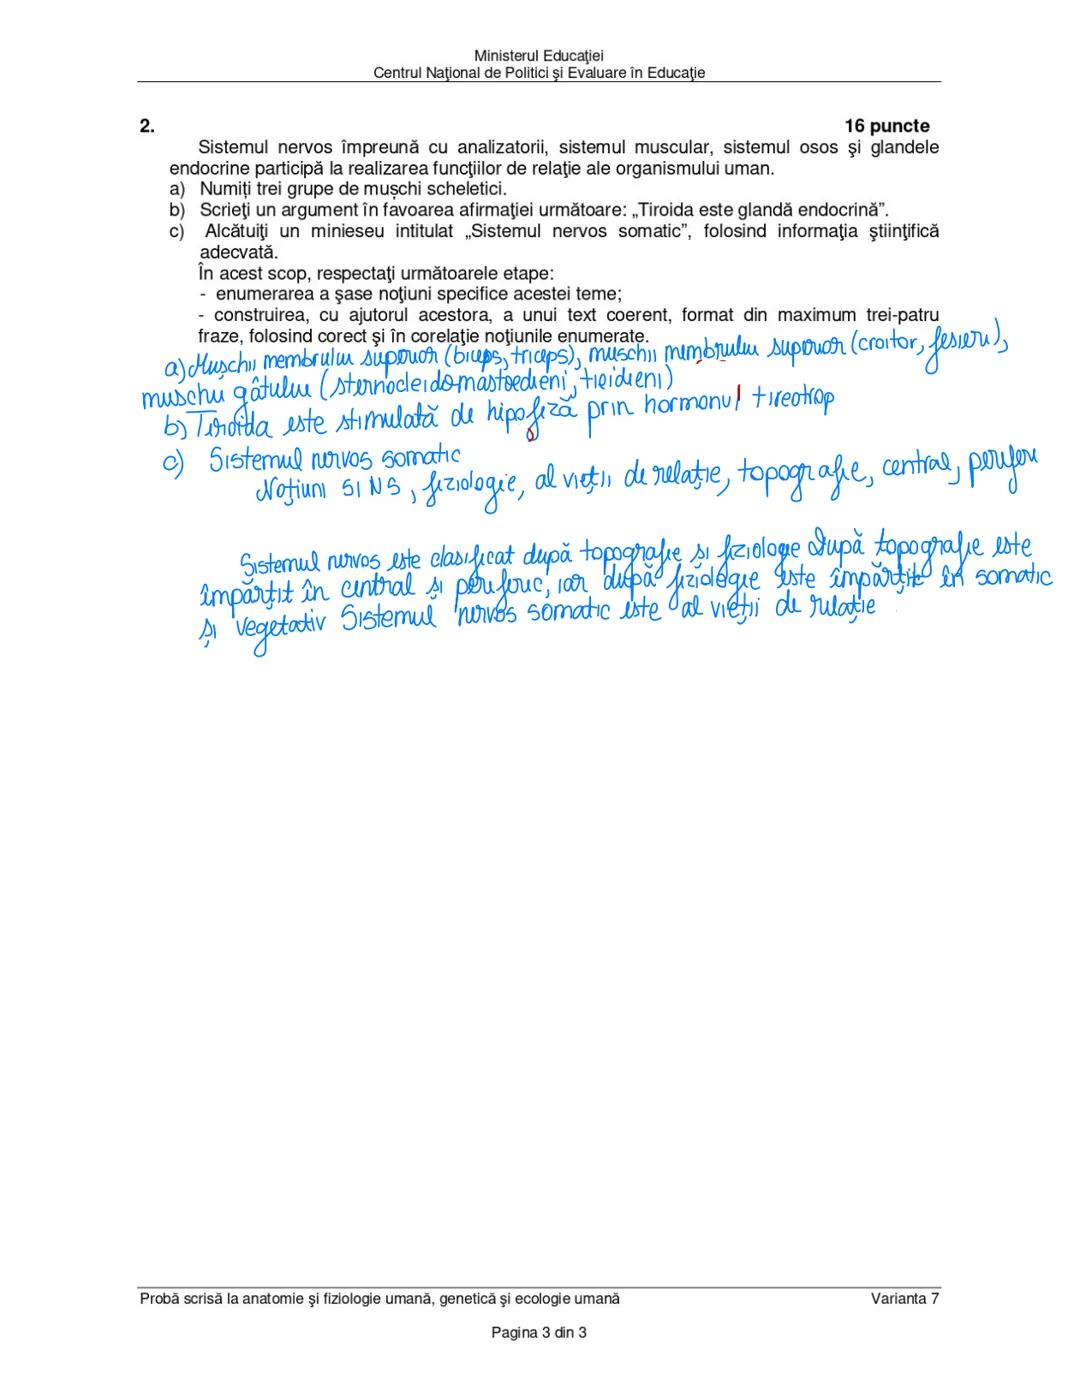 Ministerul Educaţiei
Centrul Naţional de Politici şi Evaluare în Educaţie
2. 16 puncte
Sistemul nervos împreună cu analizatorii, sistemul muscular, sistemul osos şi glandele
endocrine participă la realizarea funcţiilor de relaţie ale organismului uman.
a) Numiți trei grupe de mușchi scheletici.
b) Scrieţi un argument în favoarea afirmaţiei următoare: „Tiroida este glandă endocrină”.
c) Alcătuiţi un minieseu intitulat „Sistemul nervos somatic”, folosind informaţia ştiinţifică
adecvată.
În acest scop, respectaţi următoarele etape:
- enumerarea a şase noţiuni specifice acestei teme;
- construirea, cu ajutorul acestora, a unui text coerent, format din maximum trei-patru
fraze, folosind corect şi în corelaţie noţiunile enumerate.
a) Mușchii membrului superior (biceps, triceps), mușchii membrului superior (croitor, fesieru),
muschii gâtului (sternocleidomastoedieni, tioidieni)
b) Tiroida este stimulată de hipofiză prin hormonul tireotrop
c) Sistemul nervos somatic
Noțiuni SINS, fiziologie, al vieții de relație, topografie, central, periferi
Sistemul nervos este clasificat după topografie și fiziologie După topografie este
împărțit în central și periferic, iar după fiziologie este împărțit în somatic
și vegetativ Sistemul nervos somatic este al vieții de relație
Probă scrisă la anatomie şi fiziologie umană, genetică şi ecologie umană Varianta 7
Pagina 3 din 3